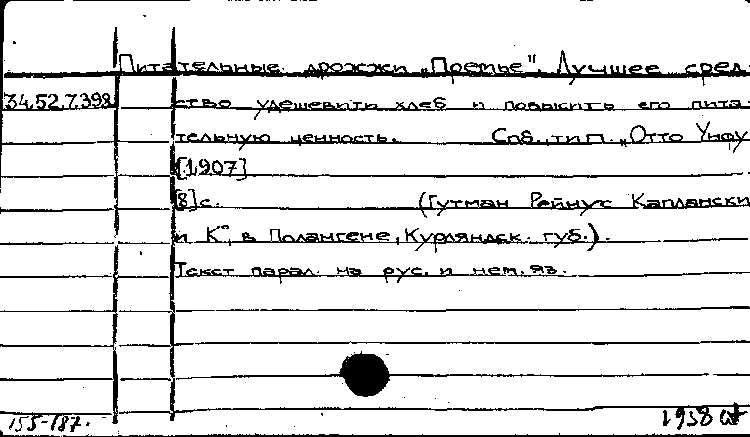 Питательные дрожжи „Препье". Лучшее сред-
34.52.7.398 ство удешевить хлеб и повысить его пита-
тельную ценность. Спб., тип. „Отто Унфу
[1907]
8]с. (Гутман Рейнус Каплански
и К°, в Полангене, Курляндск. губ.).
Текст парал. на рус. и нем. яз.
155-187.
1938